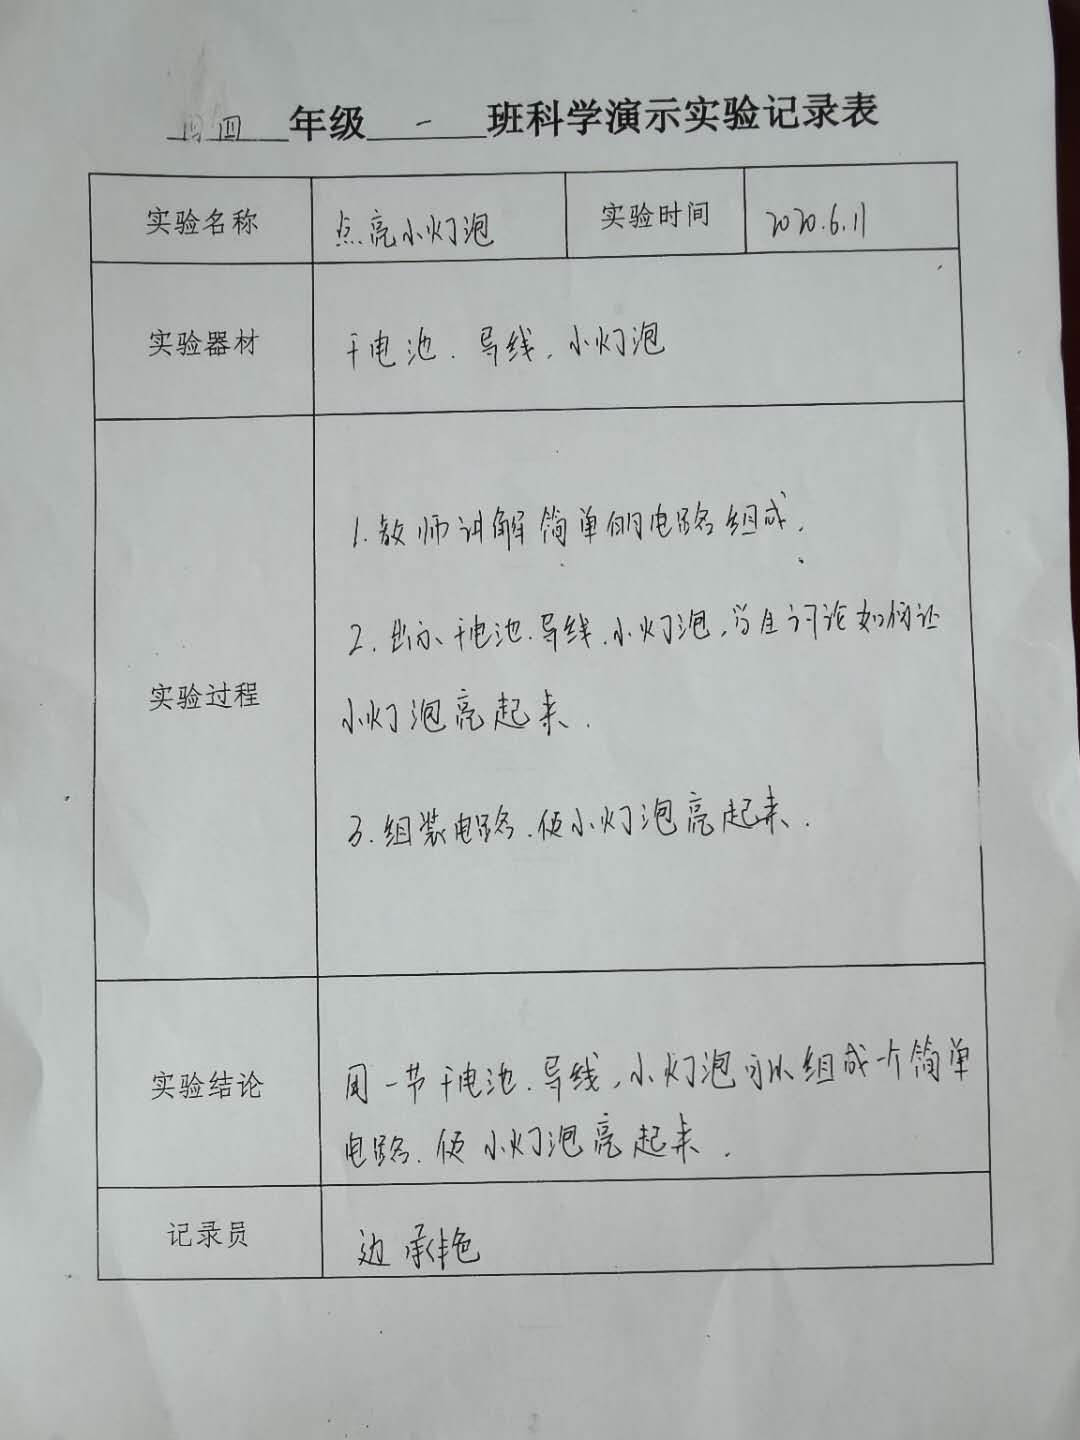 四 年级 一 班科学演示实验记录表
实验名称 点亮小灯泡 实验时间 2020.6.11
实验器材 干电池、导线、小灯泡
1.教师讲解简单的电路组成.
2.出示干电池、导线、小灯泡,学生讨论如何让
实验过程
小灯泡亮起来.
3.组装电路、使小灯泡亮起来.
实验结论
用一节干电池、导线,小灯泡可以组成一个简单
电路、使小灯泡亮起来.
记录员 边承艳